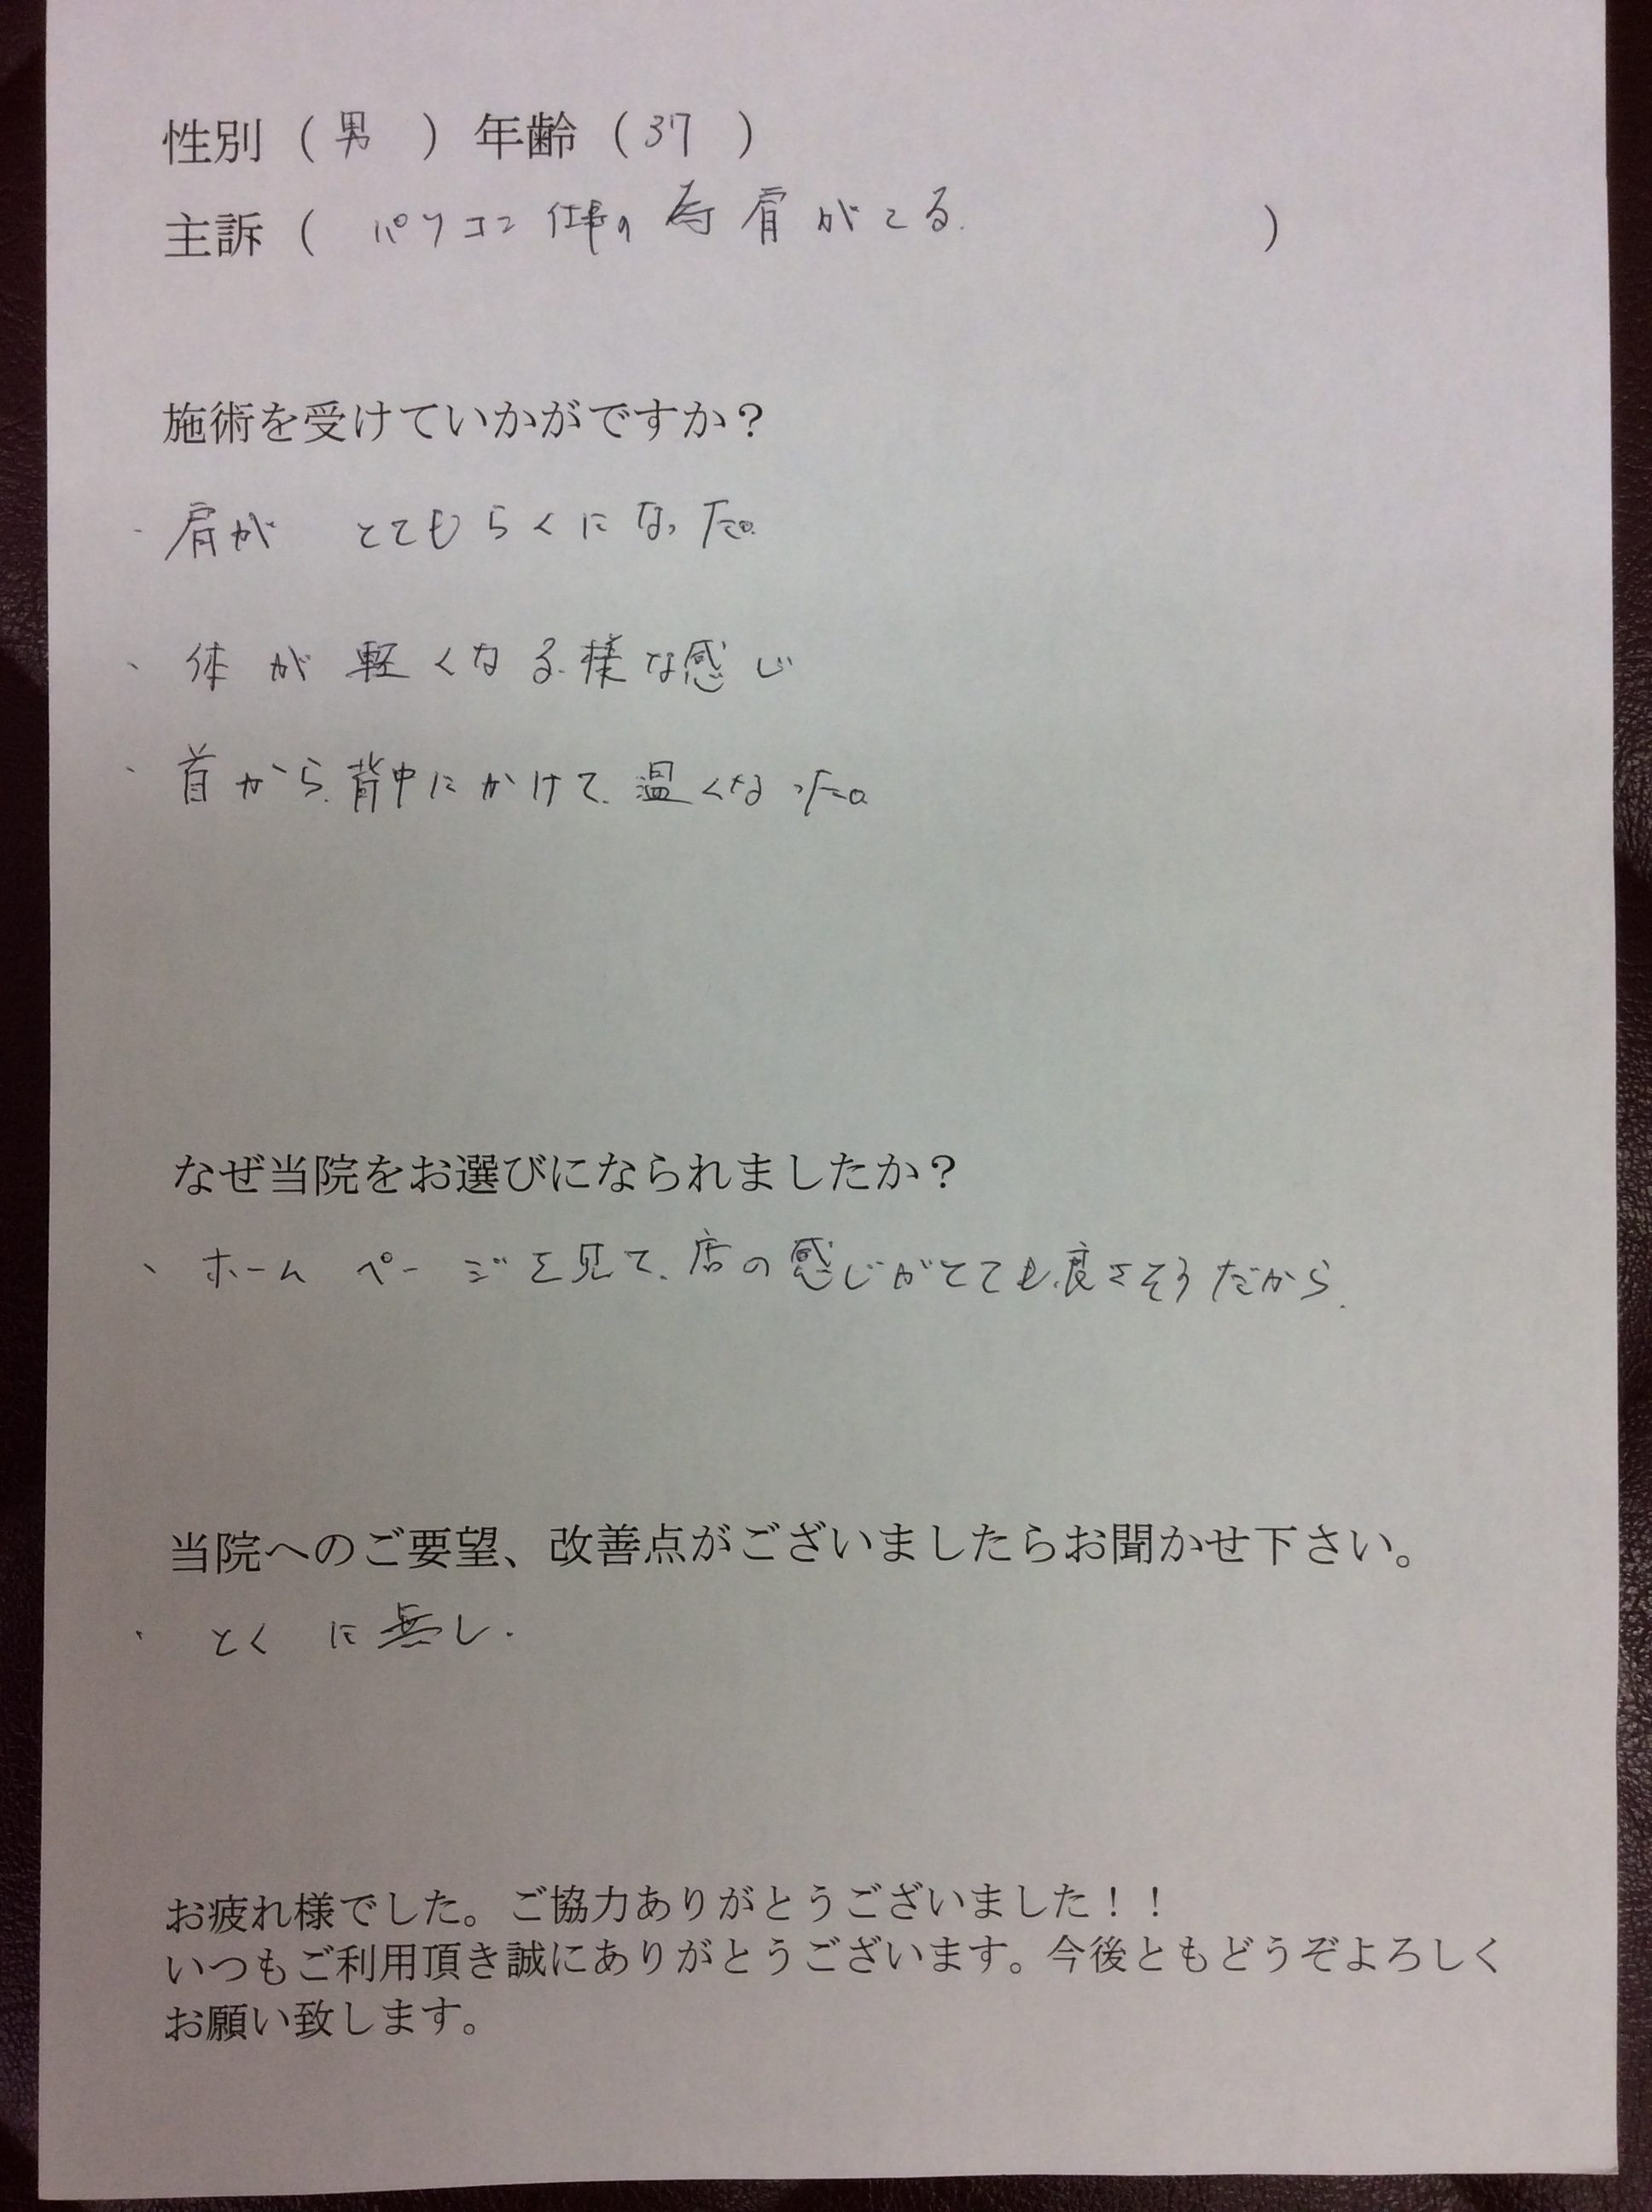 性別（男　）年齢（37　）
主訴（ パソコン仕事の為肩がこる.　）
施術を受けていかがですか？
・肩が　とてもらくになった。
、体が軽くなる.様な感じ
、首から.背中にかけて.温くなった。
なぜ当院をお選びになられましたか？
、ホームページを見て.店の感じがとても.良さそうだから.
当院へのご要望、改善点がございましたらお聞かせ下さい。
、とくに無し.
お疲れ様でした。ご協力ありがとうございました！！
いつもご利用頂き誠にありがとうございます。今後ともどうぞよろしく
お願い致します。